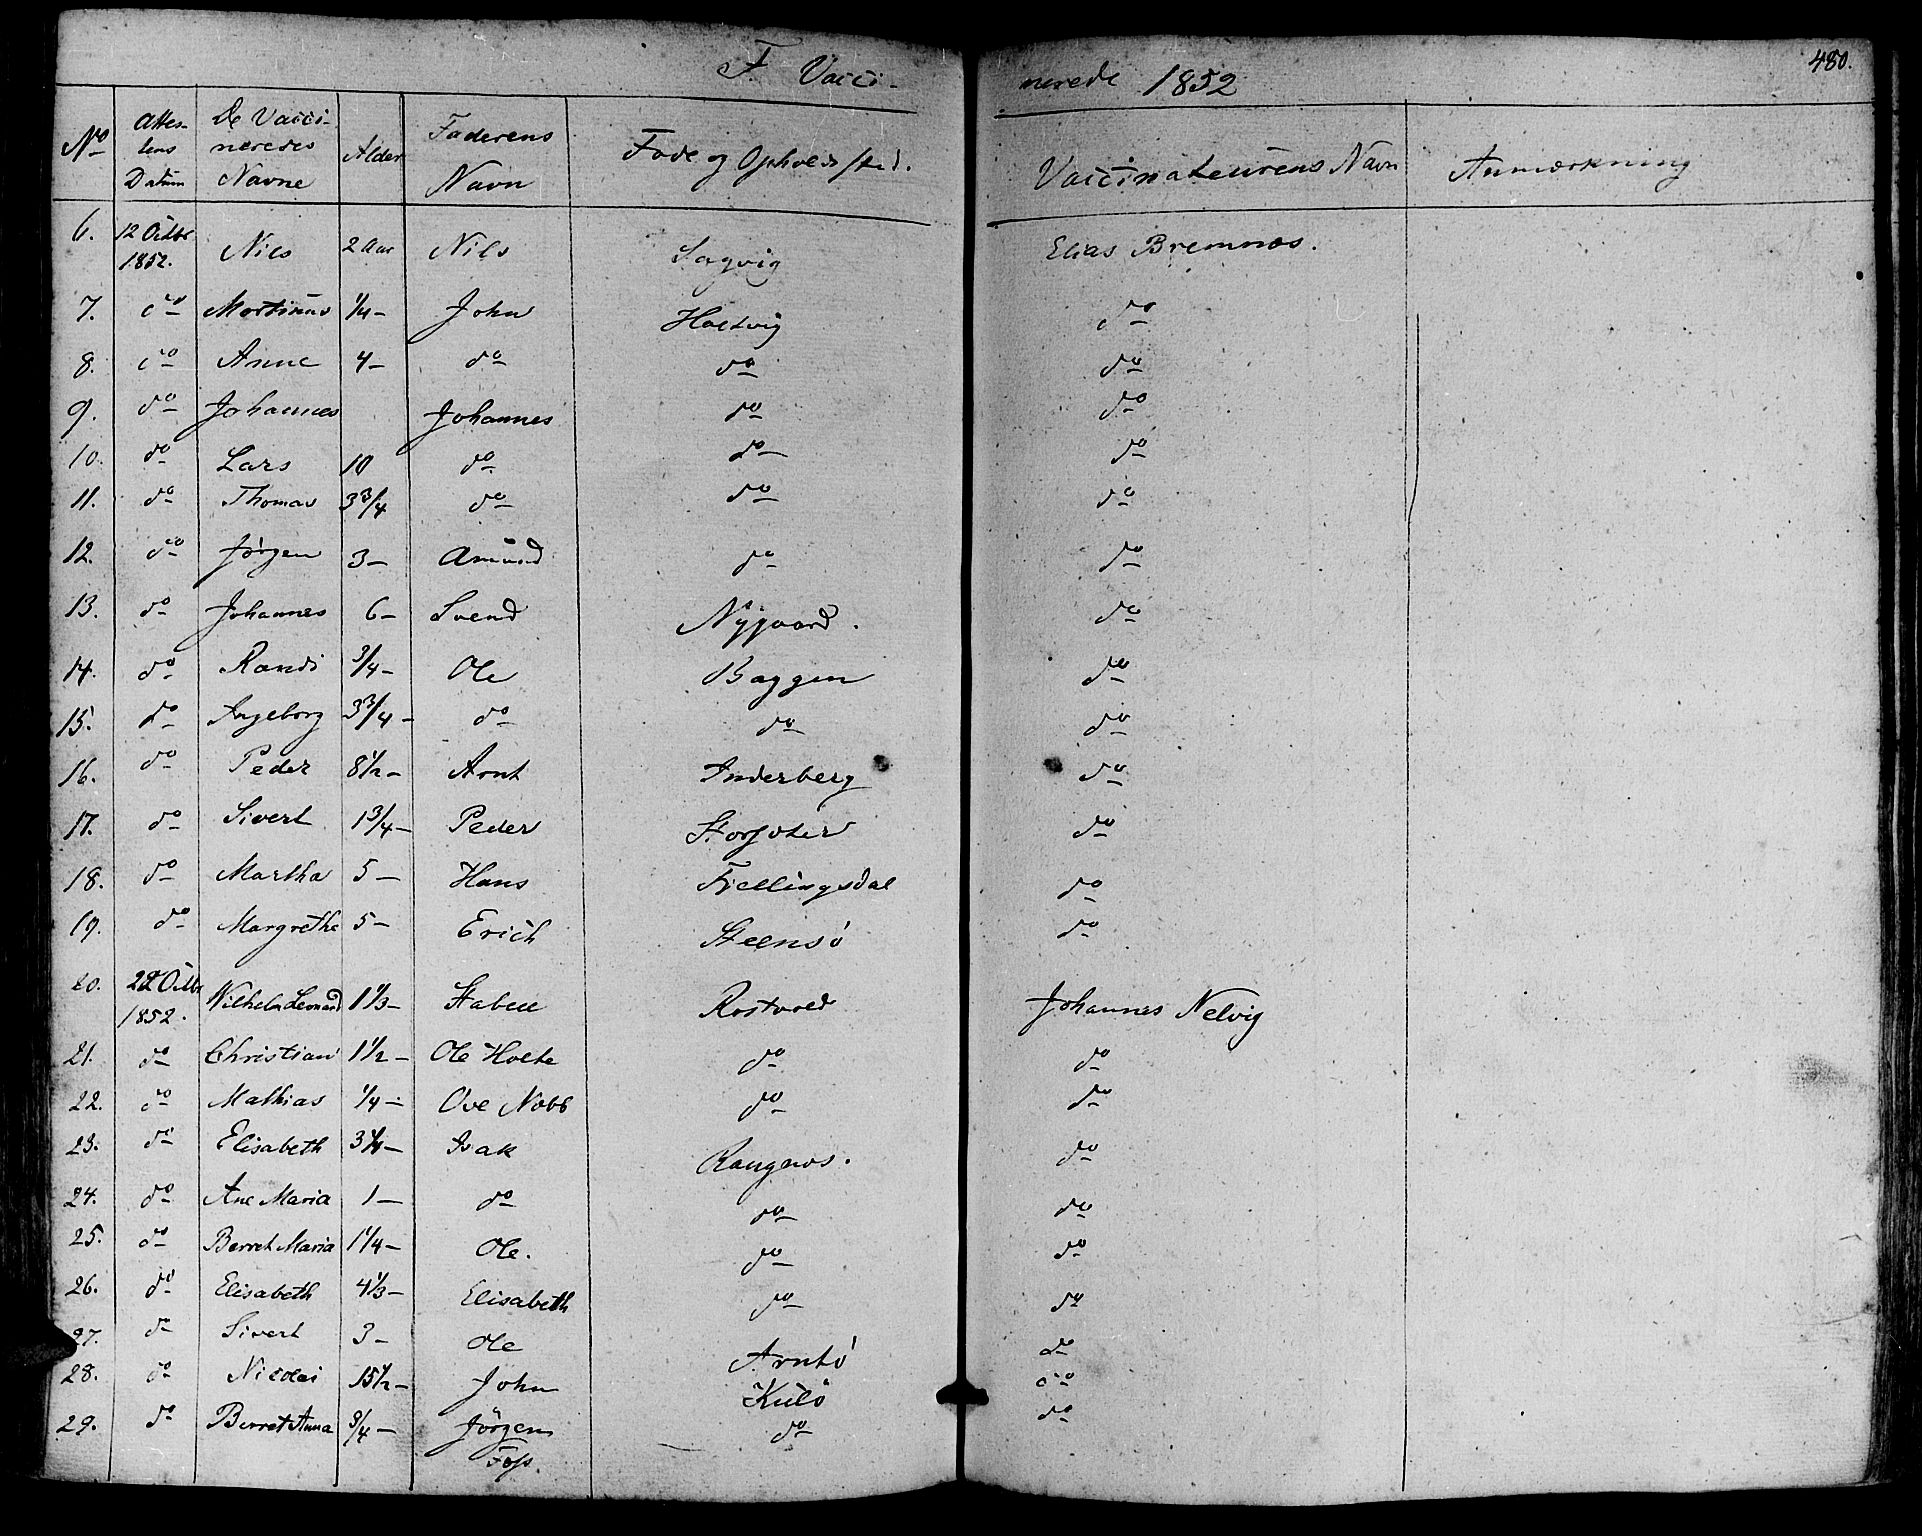 F. Vacci- nerede 1852 480.
No Attestens Datum De Vaccineredes Navne Alder Faderens Navn Føde og Opholdssted. Vaccinateurens Navn Anmærkning
6. 12 Octbr 1852. Nils 2 Aar Nils Sagvig Elias Bremnæs.
7. do Mortinus 1/4 - John Holtvig do
8. do Anne 4 - do do do
9. do Johannes Johannes do do
10. do Lars 10 do do do
11. do Thomas 3 3/4 do do do
12. do Jørgen 3 - Amund do do
13. do Johannes 6 - Svend Nÿgaard. do
14. do Randi 3/4 - Ole Baggen do
15. do Ingeborg 3 3/4 - do do do
16. do Peder 8 1/2 - Arnt Inderberg do
17. do Sivert 1 3/4 - Peder do
18. do Martha 5 - Hans Fiellingsdal do
19. do Margrethe 5 - Erich Steensø do
20. 22 Octbr 1852. Wilhelm Leonard 1 1/3 - Stabell Rostvold Johannes Nelvig
21. do Christian 1 1/2 - Ole Holte do do
22. do Mathias 1/4 - Ove Nobb do do
23. do Elisabeth 3 1/4 - Isak Raugnæs. do
24. do Ane Maria 1 - do do do
25. do Berret Maria 1 1/4 - Ole. do do
26. do Elisabeth 4 1/3 - Elisabeth do do
27. do Sivert 3 - Ole Arntø do
28. do Nicolai 15 1/2 - John Kulø do
29. do Berret Anna 3/4 - Jörgen Foss. do do